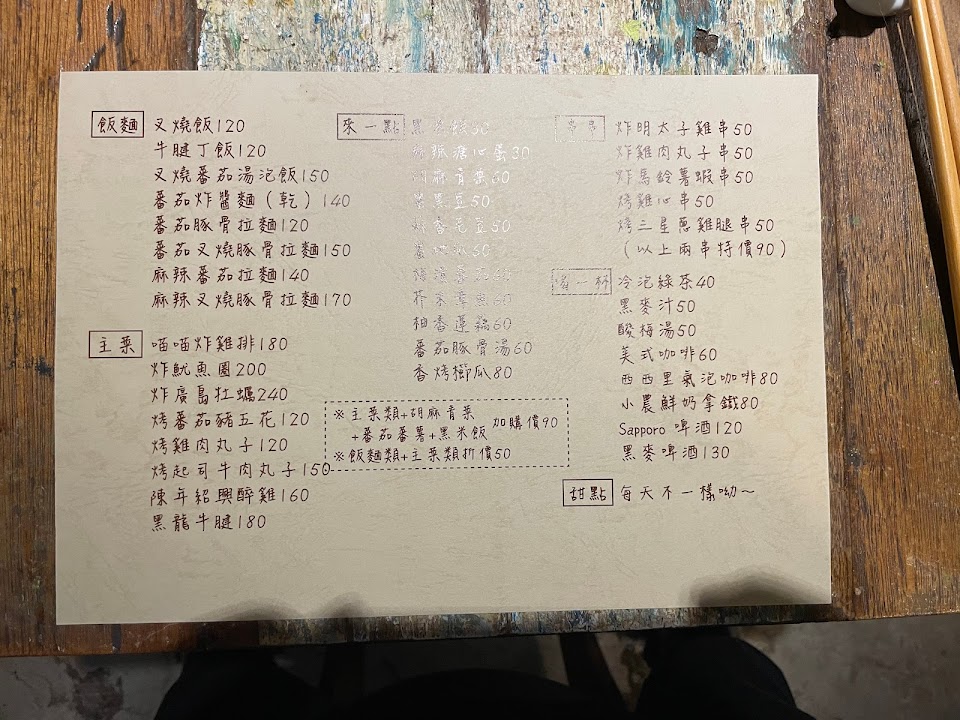 飯麵
叉燒飯120
牛腱丁飯120
叉燒蕃茄湯泡飯150
蕃茄炸醬麵(乾)140
蕃茄豚骨拉麵120
蕃茄叉燒豚骨拉麵150
麻辣蕃茄拉麵140
麻辣叉燒豚骨拉麵170
主菜
喵喵炸雞排180
炸魷魚圈200
炸廣島牡蠣240
烤蕃茄豬五花120
烤雞肉丸子120
烤起司牛肉丸子150
陳年紹興醉雞160
黑龍牛腱180
來一點
麻辣溏心蛋30
胡麻青菜60
蜜黑豆50
花豆50
50
芥末章魚60
柚香蓮藕60
蕃茄豚骨湯60
香烤櫛瓜80
※主菜類+胡麻青菜
+蕃茄蕃薯+黑米飯 加購價90
※飯麵類+主菜類折價50
串串
炸明太子雞串50
炸雞肉丸子串50
炸馬鈴薯蝦串50
烤雞心串50
烤三星蔥雞腿串50
(以上兩串特價90)
喝一杯
冷泡綠茶40
黑麥汁50
酸梅湯50
美式咖啡60
西西里氣泡咖啡80
小農鮮奶拿鐵80
Sapporo 啤酒120
黑麥啤酒130
甜點
每天不一樣呦~